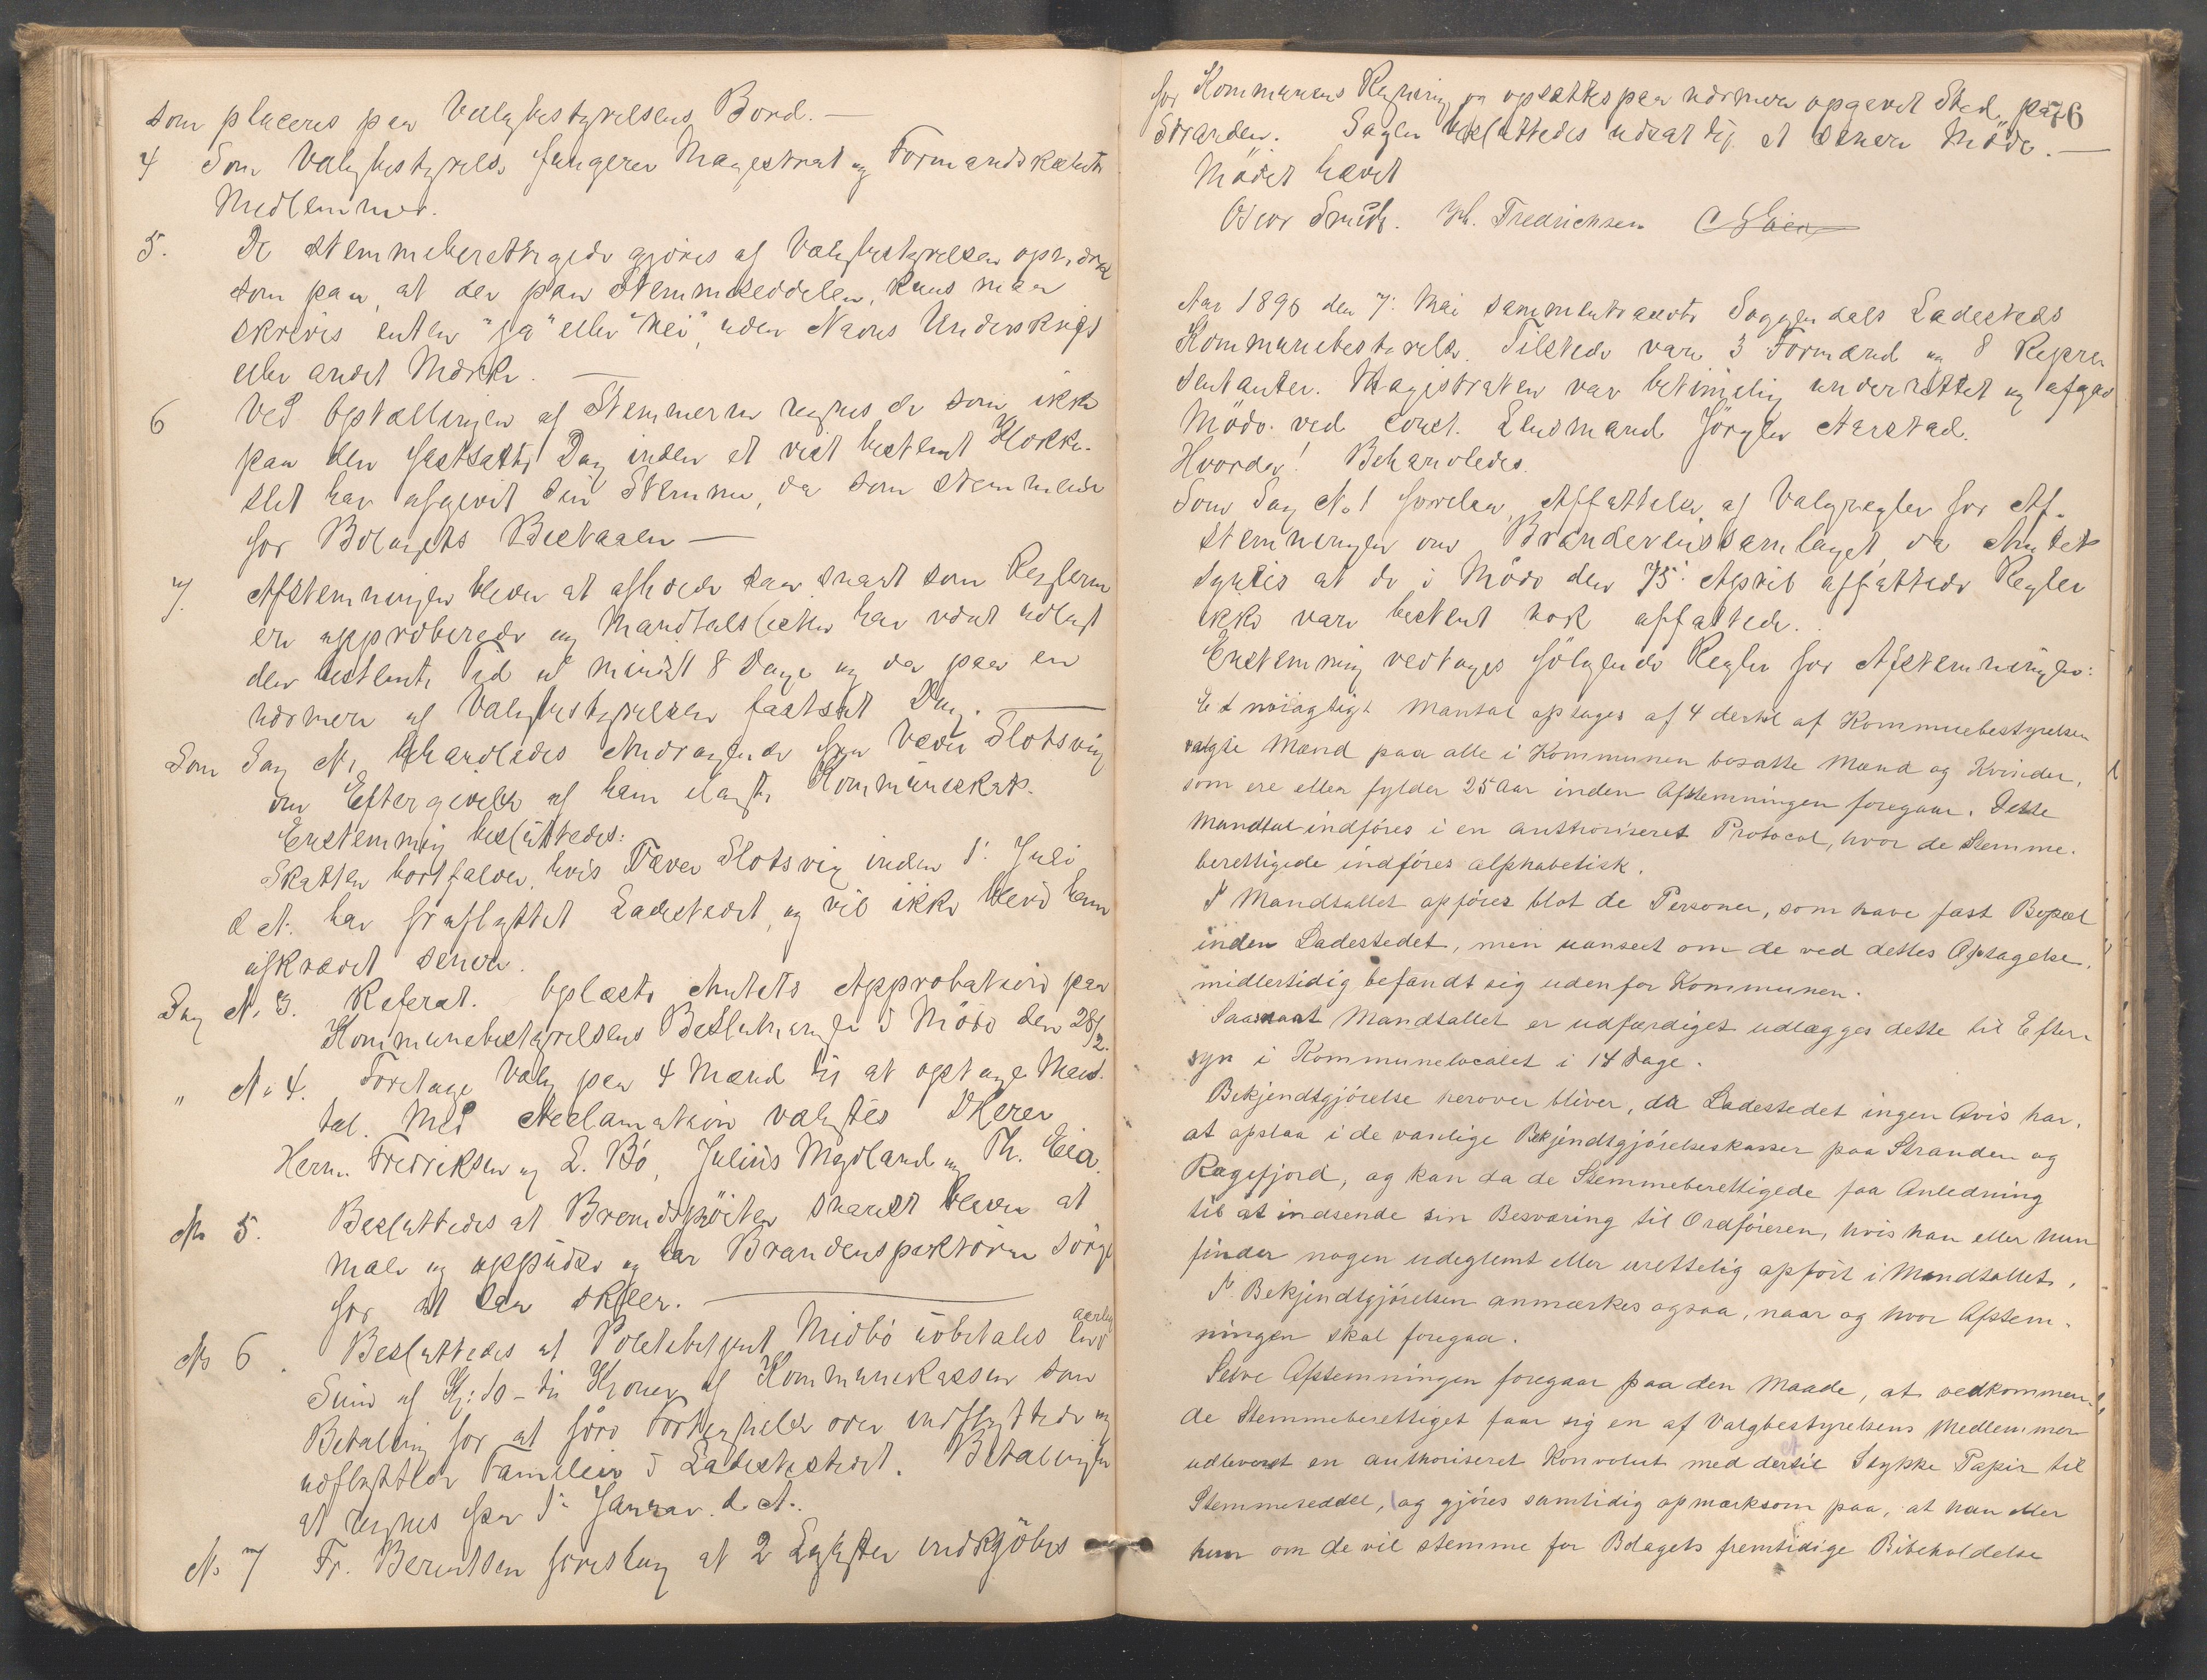 som placeres paa Valgbestyrelsens Bord. —
4 Som Valgbestyrelse fungerer Magestrat og Formandskabets
Medlemmer.
5. De stemmeberettigede gjöres af Valgbestyrelsen opmærk
som paa, at der paa Stemmeseddelen, kuns maa
skrives enten "ja" eller "nei", uden Navns Underskrift
eller andet Mærke. —
6 Ved Optællingen af Stemmerne regnes de som ikke
paa den fastsatte Dag inden et vist bestemt Klokke-
slet har afgivet sin Stemme, da som stemmende
for Bolagets Bestaaen —
7. Afstemningen bliver at afholde saa snart som Reglerne
er approberede og Mandtalslisten har været udlagt
den bestemte Tid af mindst 8 Dage og da paa en
nærmere af Valgbestyrelsen fastsat Dag. —
Som Sag No behandledes Andragende fra Væver Slotsvig
om Eftergivelse af ham ilagte Kommuneskat.
Enstemmig besluttedes:
Skatten bortfalder, hvis Væver Slotsvig inden 1. Juli
d. A. har fraflyttet Ladestedet, og vil ikke blive ham
afkrævet senere.
Sag No 3. Referat. Oplæste Amtets Approbation paa
Kommunebestyrelsens Beslutninger i Möde den 28/2.
" No 4. Foretage Valg paa 4 Mænd til at optage Mand-
tal. Med Acclamation valgtes DHerer
Herm. Fredriksen og L. Bö, Julius Mydland og Th. Eia.
No 5. Besluttedes at Brandspröiten snarest bliver at
male og oppudse og har Brandinspektören sörge
for at saa skeer. —
No 6. Besluttedes at Politibetjent Midbö udbetales en aarlig
Sum af Kr: 10 – ti Kroner af Kommunekassen som
Betaling for at före Fortegnelse over indflyttede og
udflyttede Familier i Ladestedet. Betalingen
at regnes fra 1. Januar d. A.
No 7 Fr. Berentsen foreslog at 2 Lygter indkjöbes
for Kommunens Regning og opsættes paa nærmere opgivet Sted, paa 76
Stranden. Sagen besluttedes udsat til et senere Möde. —
Mödet hævet
Oscar Smith. Fredrichsen
Aar 1896 den 7. Mai sammentraadte Soggendals Ladesteds
Kommunebestyrelse. Tilstede vare 3 Formænd og 8 Repræ
sentanter. Magistraten var betimelig underrettet og afgav
Möde ved const. Lensmand Jörgen Aarstad.
Hvorda! Behandledes.
Som Sag No 1 forelaa Affattelse af Valgregler for Af-
stemningen om Brændevinssamlaget, da Amtet
syntes at de i Möde den 15. April affattede Regler
ikke vare bestemt nok affattede.
Enstemmig vedtages fölgende Regler for Afstemningen:
Et nöiagtigt Mantal optages af 4 dertil af Kommuebestyrelsen
valgte Mænd paa alle i Kommunen bosatte Mænd og Kvinder,
som ere eller fylder 25 Aar inden Afstemningen foregaar. Dette
Mandtal indföres i en authoriseret Protocol, hvor de Stemme-
berettigede indföres alphabetisk.
I Mandtallet opföres blot de Personer, som have fast Bopæl
inden Ladestedet, men uanseet om de ved dettes Optagelse,
midlertidig befandt sig udenfor Kommunen.
Saasnart Mandtallet er udfærdiget udlægges dette til Efter-
syn i Kommunelocalet i 14 Dage.
Bekjendtgjörelse herover bliver, da Ladestedet ingen Avis har,
at opslaa i de vanlige Bekjendtgjörelseskasser paa Stranden og
Rægefjord, og kan da de Stemmeberettigede faa Anledning
til at indsende sin Besværing til Ordföreren, hvis han eller hun
finder nogen udeglemt eller urettelig opfört i Mandtallet.
I Bekjendtgjörelsen anmærkes ogsaa, naar og hvor Afstem-
ningen skal foregaa.
Selve Afstemningen foregaar paa den Maade, at vedkommen-
de Stemmeberettiget faar sig en af Valgbestyrelsens Medlemmer
udleveret en authoriseret Konvolut med et dertil Stykke Papir til
Stemmeseddel, og gjöres samtidig opmærksom paa, at han eller
hun om de vil stemme for Bolagets fremtidige Bibeholdelse